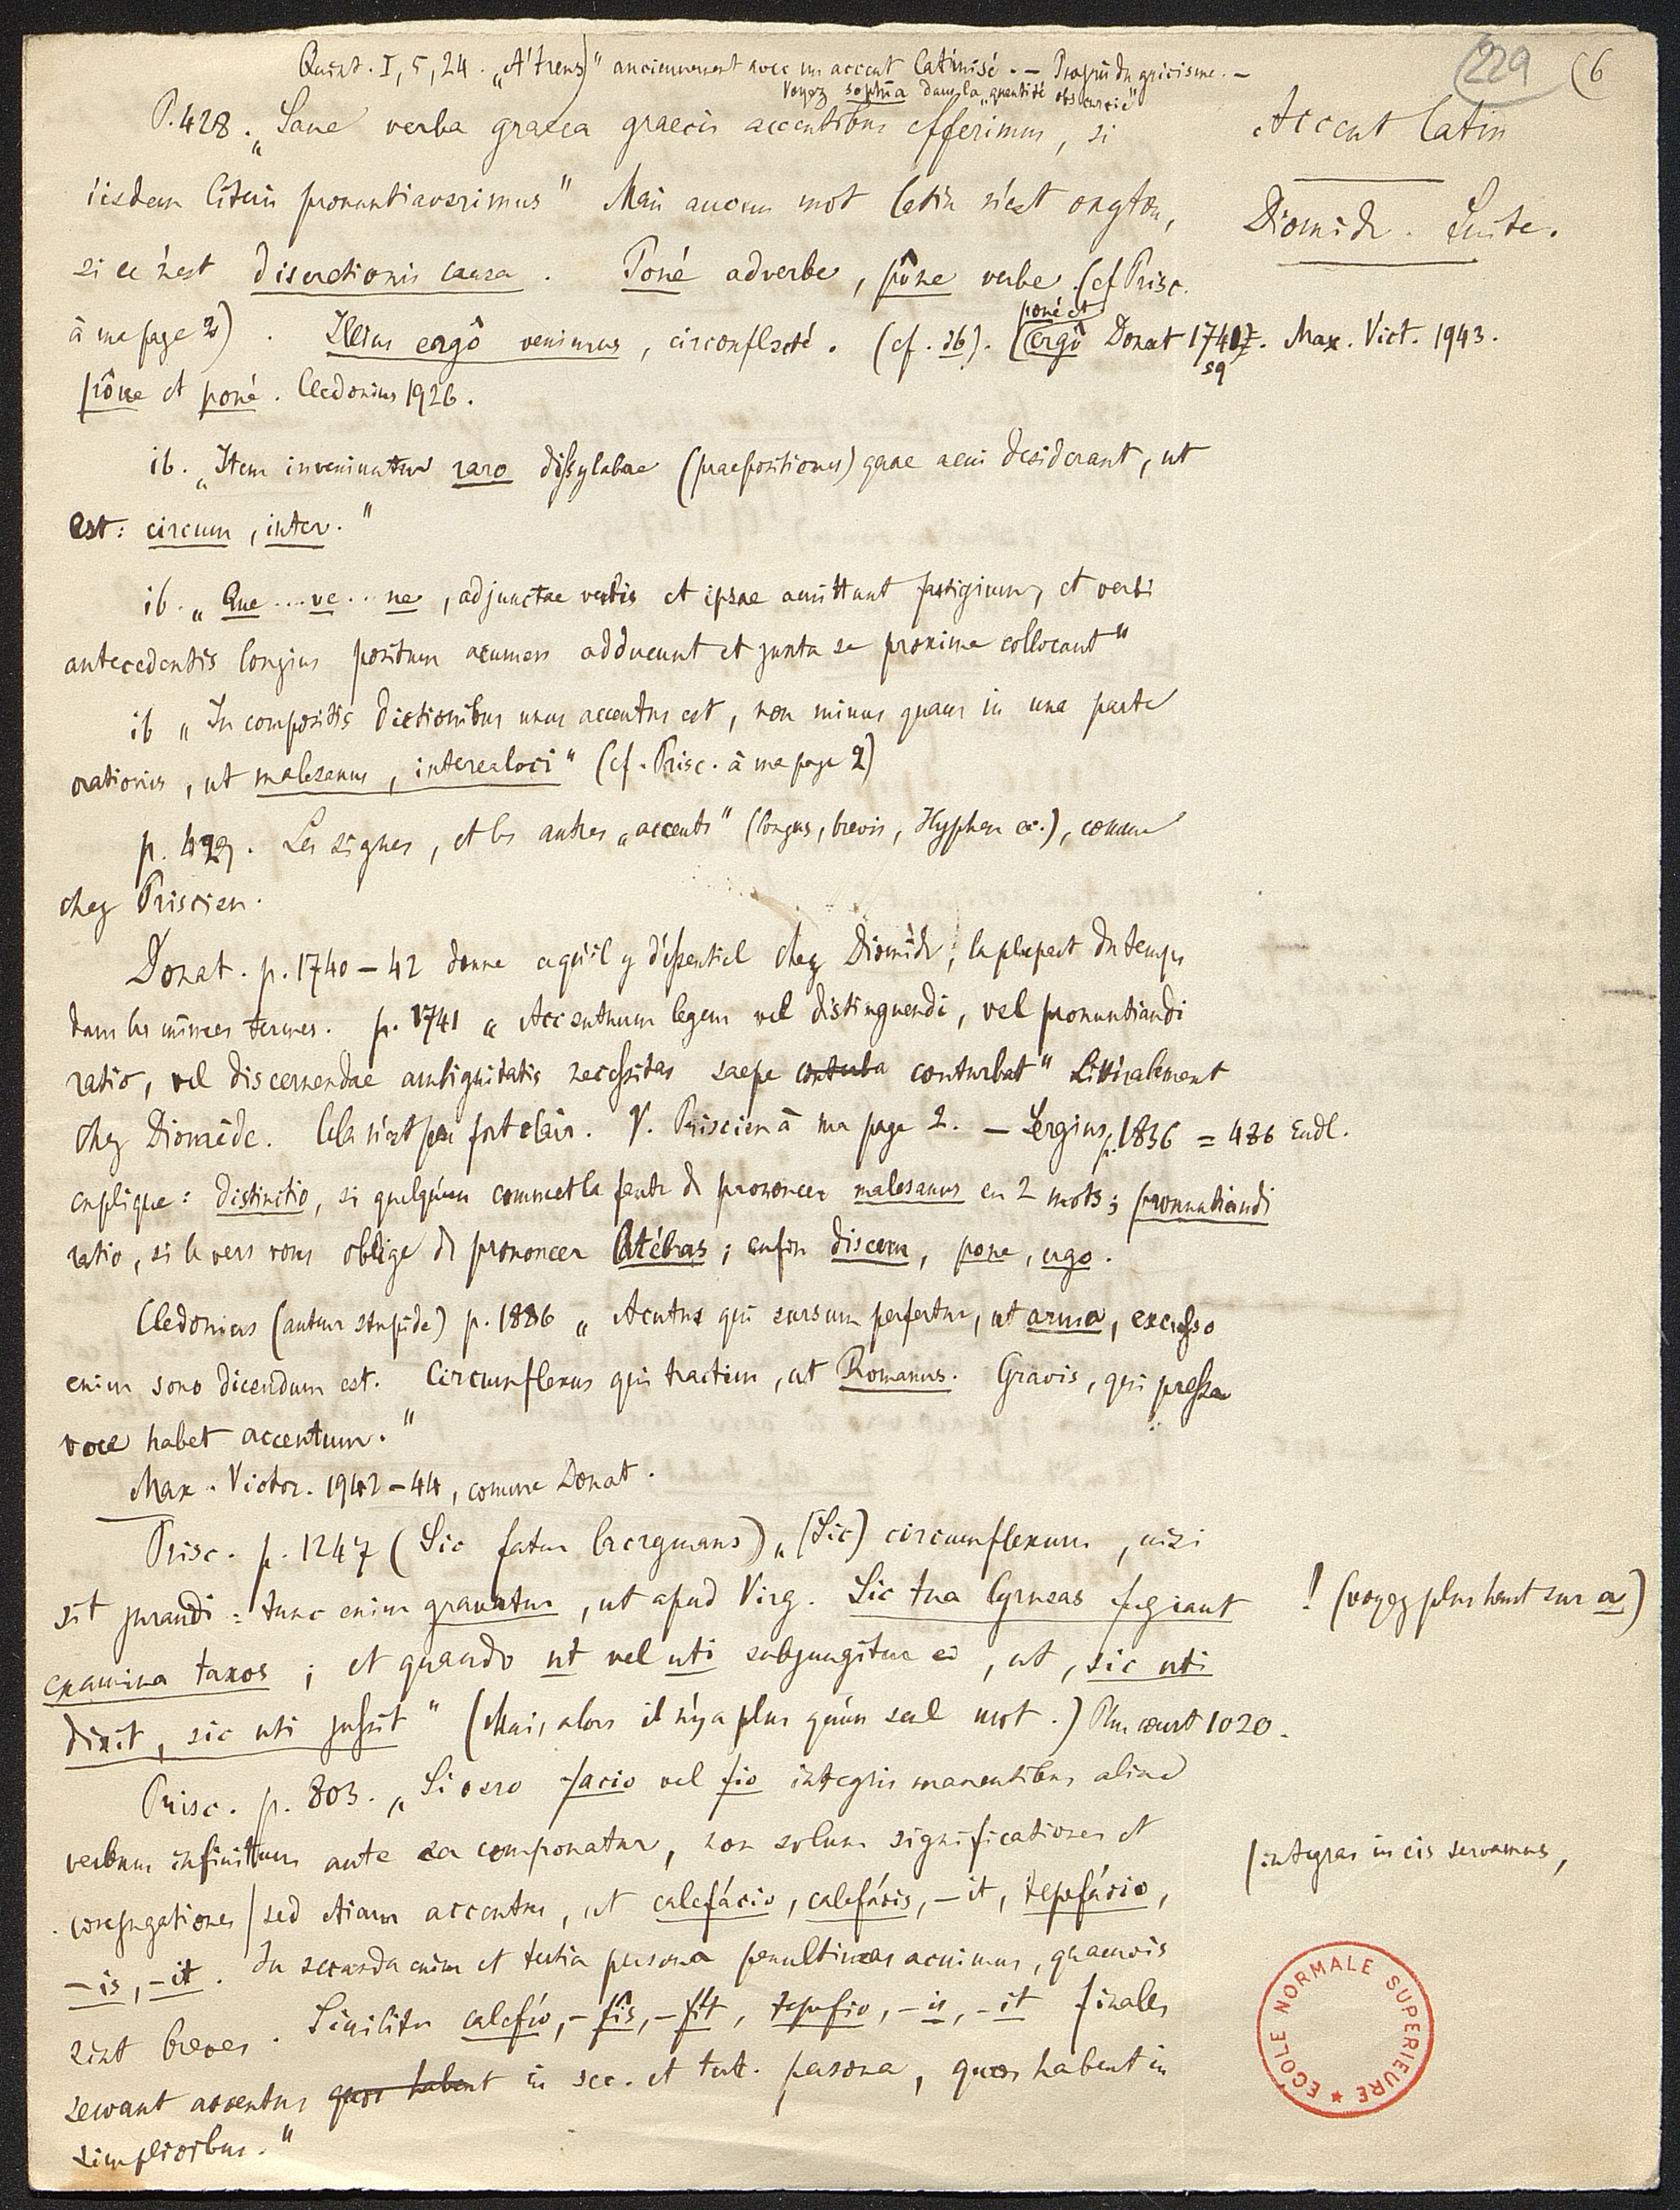 229 (6
Quint. I, 5, 24. „A'treus)" anciennement avec un accent latinisé. — Progrès du grécisme. —
Voyez sophīa dans la „quantité obscurcie"
P. 428. „Sane verba graeca graecis accentibus efferimus, si
Accent latin
iisdem literis pronuntiaverimus" Mais aucun mot latin n'est oxyton,
Diomède. Suite.
si ce n'est discretionis causa. Poné adverbe, pône verbe (cf Prisc.
à ma page 2). Illius ergô venimus, circonflecté. (cf. ib). (poné et ergô Donat 1741 sq. Max. Vict. 1943.
pône et poné. Cledonius 1926.
ib. „Item inveniuntur raro dissylabae (praepositiones) quae acui desiderant, ut
est: circum, inter."
ib. „Que ... ve ... ne, adjunctae verbis et ipsae amittunt fastigium, et verbi
antecedentis longius positum acumen adducunt et juxta se proxime collocant"
ib „In compositis dictionibus unus accentus est, non minus quam in una parte
orationis, ut malesanus, interealoci" (cf. Prisc. à ma page 2)
p. 429. Les signes, et les autres „accents" (longus, brevis, Hyphen &c.), comme
chez Priscien.
Donat. p. 1740 – 42 donne ce qu'il y d'essentiel chez Diomède, la plupart du temps
dans les mêmes termes. p. 1741 „Accentuum legem vel distinguendi, vel pronuntiandi
ratio, vel discernendae ambiguitatis necessitas saepe contuba conturbat" Littéralement
chez Diomède. Cela n'est pas fort clair. V. Priscien à ma page 2. — Sergius p. 1836 = 486 Endl.
explique: distinctio, si quelqu'un commet la faute de prononcer malesanus en 2 mots; pronuntiandi
ratio, si le vers vous oblige de prononcer latébras; enfin discern, pone, ergo.
Cledonius (auteur stupide) p. 1886 „Acutus qui sursum perfertur, ut arma, excelso
enim sono dicendum est. Circumflexus qui tractim, ut Romanus. Gravis, qui pressa
voce habet accentum."
Max. Victor. 1942 – 44, comme Donat.
Prisc. p. 1247 (Sic fatur lacrymans) „(Sic) circumflexum, nisi
sit jurandi: tunc enim gravatur, ut apud Virg. Sic tua Cyrneas fugiant
! (voyez plus haut sur a)
examina taxos; et quando ut vel uti subjungitur ei, ut, sic uti
dixit, sic uti jussit" (Mais, alors il n'y a plus qu'un seul mot.) Plus court 1020.
Prisc. p. 803. „Si vero facio vel fio integris manentibus aliud
verbum infinitum ante ea componatur, non solum significationes et
conjugationes / sed etiam accentus, ut calefácio, calefácis, – it, tepefácio,
/ integras in eis servamus,
– is, – it. In secunda enim et tertia persona penultimas acuimus, quamvis
sint breves. Similiter calefío, – fîs, – fît, tepefio, – is, – it finales
servant accentus quos habent in sec. et tert. persona, quos habent in
simplicibus."
ECOLE NORMALE SUPERIEURE